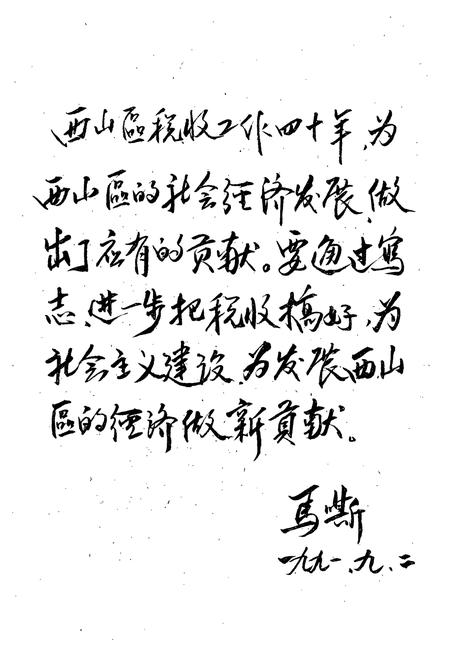 西山區税收工作四十年,为
西山區的社会經济发展,做
出了应有的贡献。要通过寫
志,进一步把税收搞好,为
社会主义建设,为发展西山
區的經济做新貢献。
馬嘶
一九九一.九.二